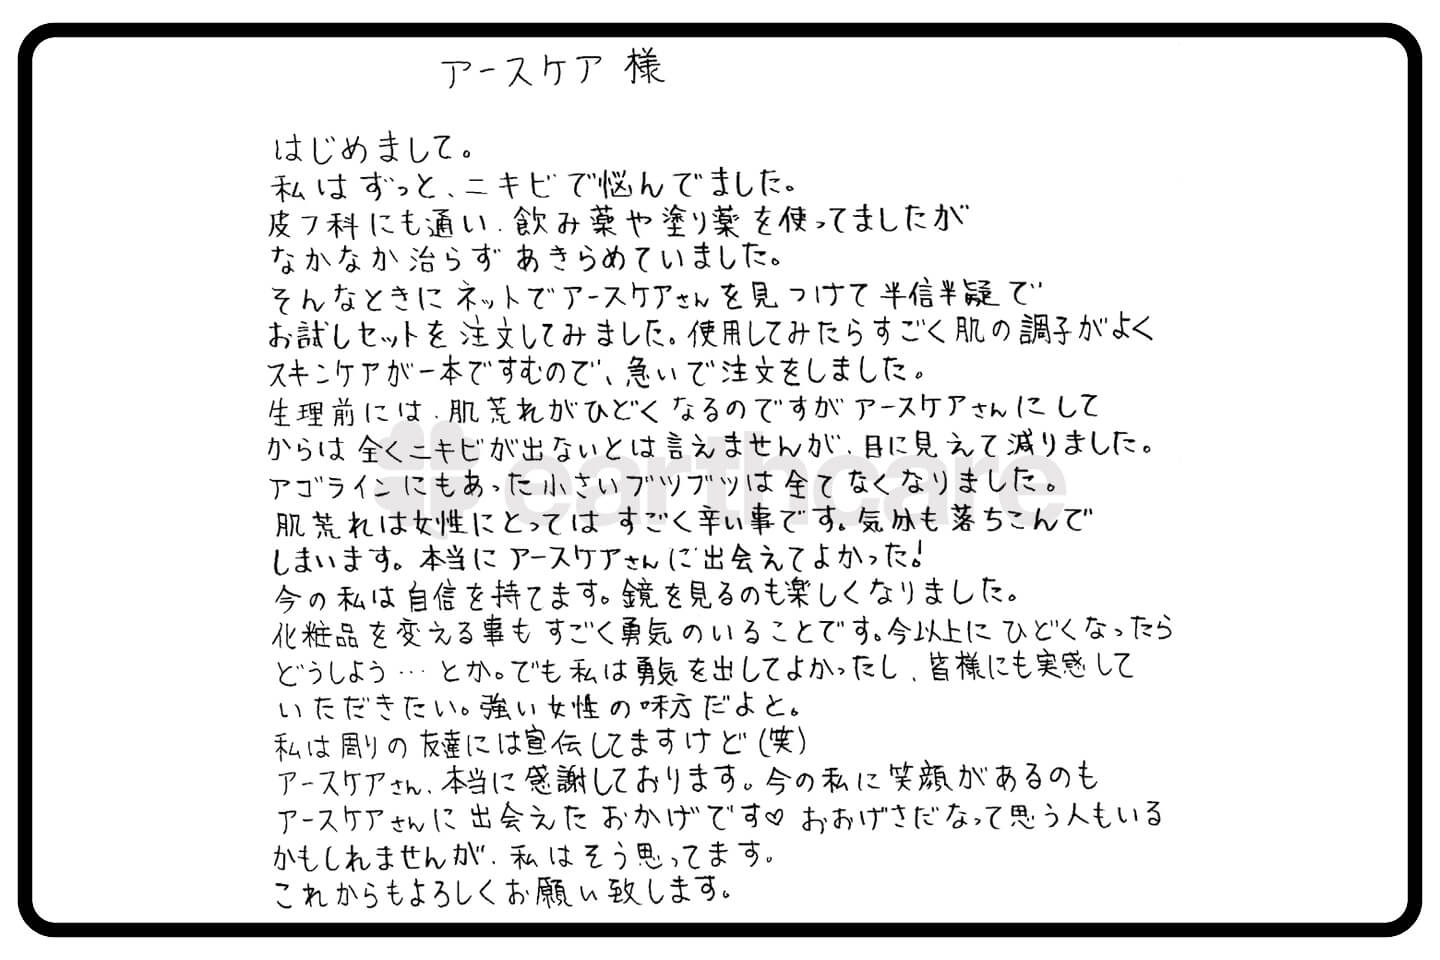 アースケア 様
はじめまして。
私はずっと、ニキビで悩んでました。
皮フ科にも通い、飲み薬や塗り薬を使ってましたが
なかなか治らず あきらめていました。
そんなときに ネットでアースケアさんを見つけて 半信半疑で
お試しセットを注文してみました。使用してみたらすごく肌の調子がよく
スキンケアが一本ですむので、急いで注文をしました。
生理前には、肌荒れがひどくなるのですが アースケアさんにして
からは 全くニキビが出ないとは言えませんが、目に見えて減りました。
アゴラインにもあった小さいブツブツは全てなくなりました。
earthcare
肌荒れは女性にとっては すごく辛い事です。気分も落ちこんで
しまいます。本当に アースケアさんに出会えてよかった!
今の私は自信を持てます。鏡を見るのも楽しくなりました。
化粧品を変える事も すごく勇気のいることです。今以上に ひどくなったら
どうしよう…とか。でも私は勇気を出してよかったし、皆様にも実感して
いただきたい。強い女性の味方だよと。
私は周りの友達には宣伝してますけど(笑)
アースケアさん、本当に感謝しております。今の私に笑顔があるのも
アースケアさんに出会えたおかげです♡ おおげさだなって思う人もいる
かもしれませんが、私はそう思ってます。
これからもよろしくお願い致します。